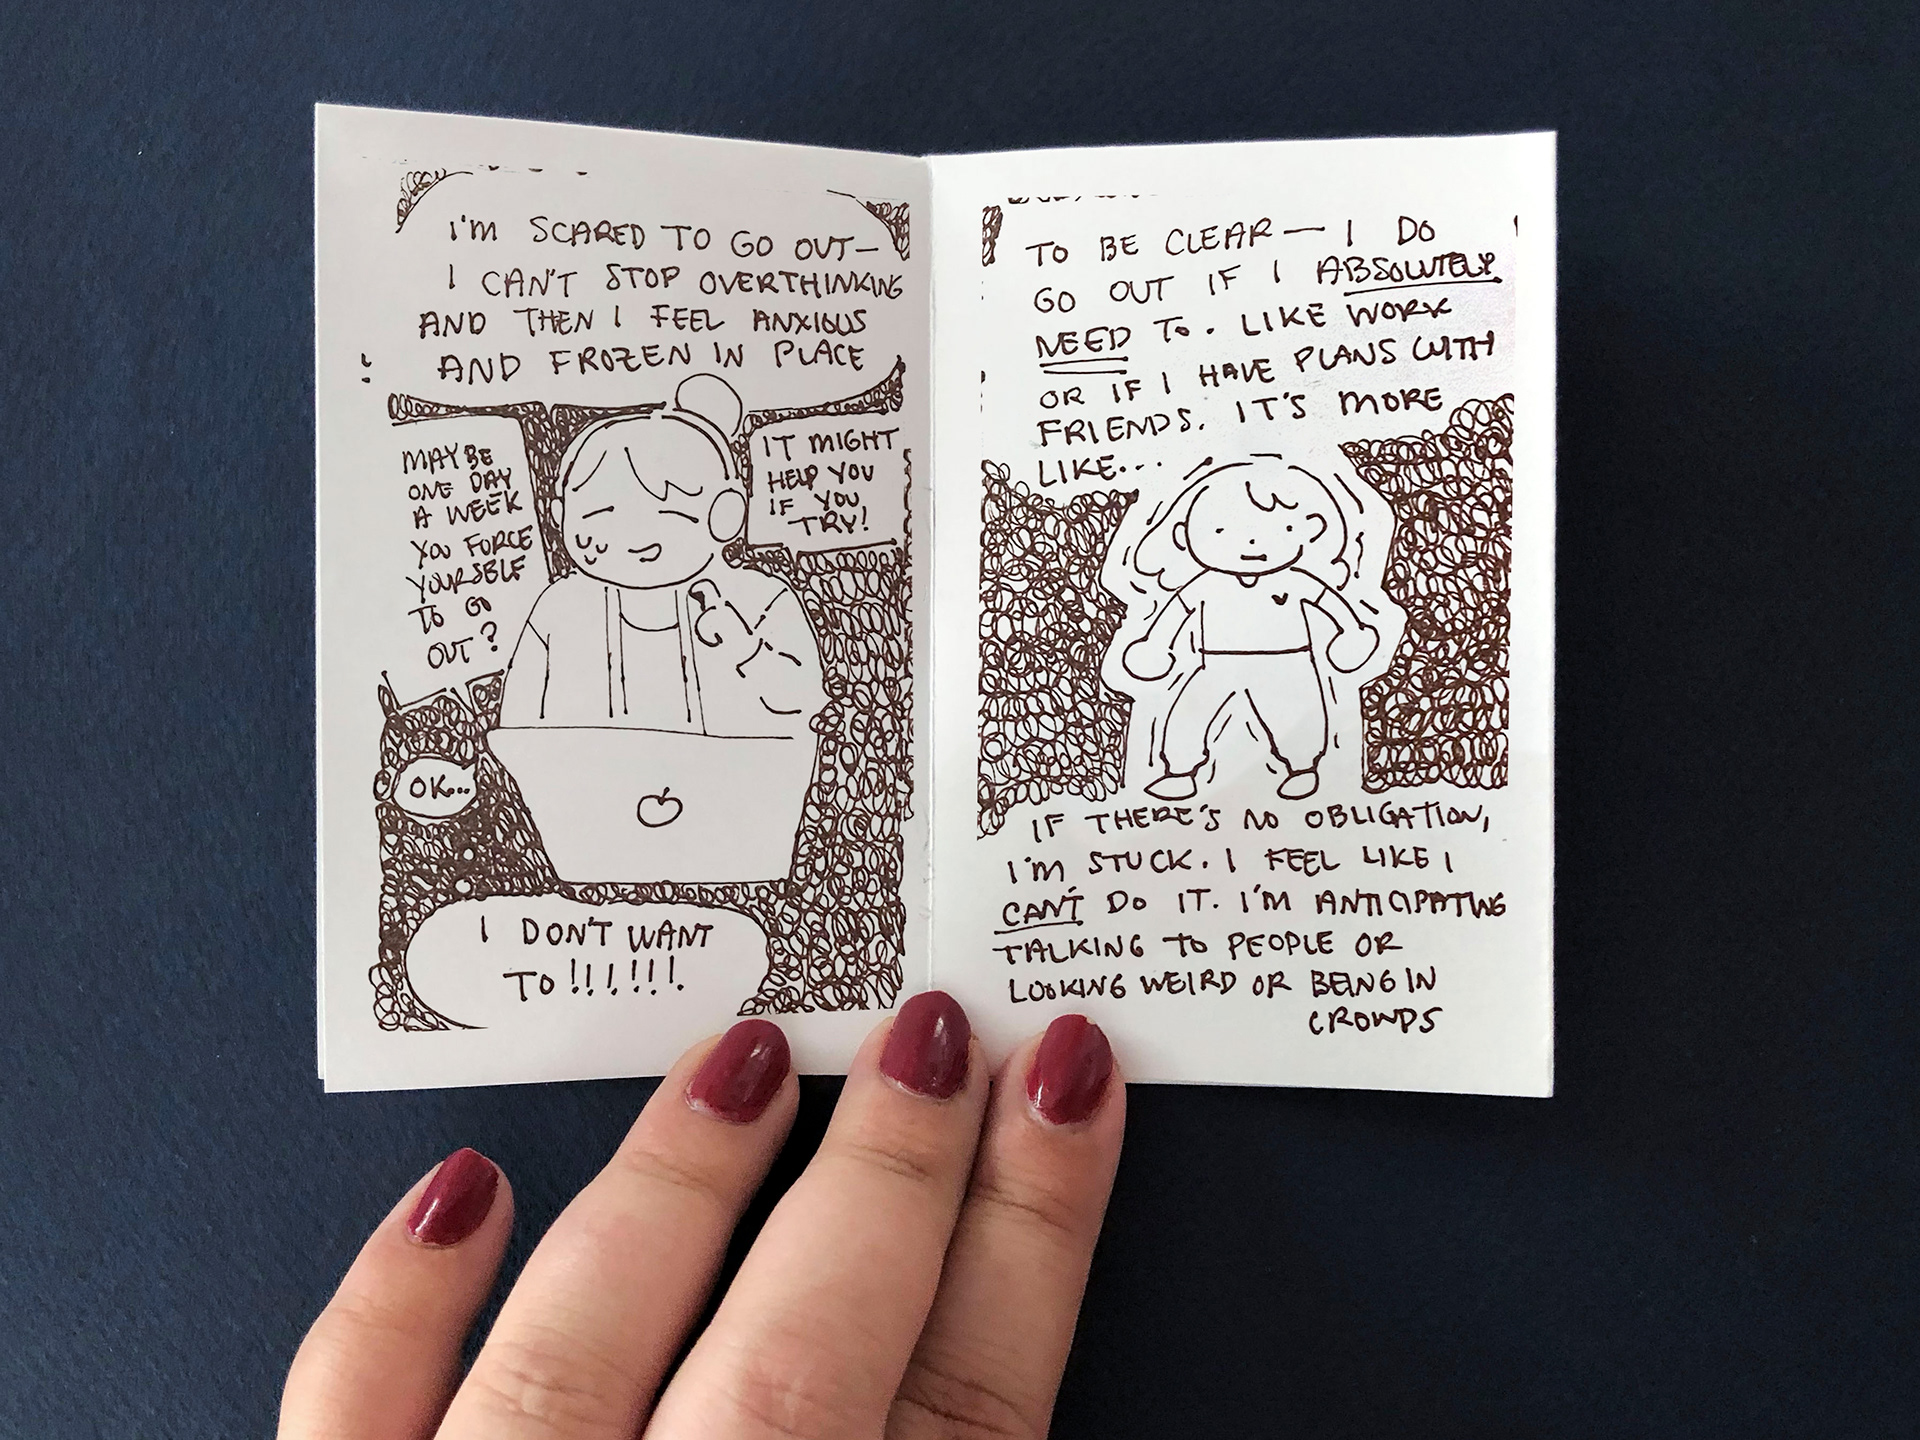 I'M SCARED TO GO OUT—
I CAN'T STOP OVERTHINKING
AND THEN I FEEL ANXIOUS
AND FROZEN IN PLACE
MAYBE
ONE DAY
A WEEK
YOU FORCE
YOURSELF
TO GO
OUT?
IT MIGHT
HELP YOU
IF YOU
TRY!
OK...
I DON'T WANT
TO!!!!!!
TO BE CLEAR— I DO
GO OUT IF I ABSOLUTELY
NEED TO. LIKE WORK
OR IF I HAVE PLANS WITH
FRIENDS. IT'S MORE
LIKE...
IF THERE'S NO OBLIGATION,
I'M STUCK. I FEEL LIKE I
CAN'T DO IT. I'M ANTICIPATING
TALKING TO PEOPLE OR
LOOKING WEIRD OR BEING IN
CROWDS